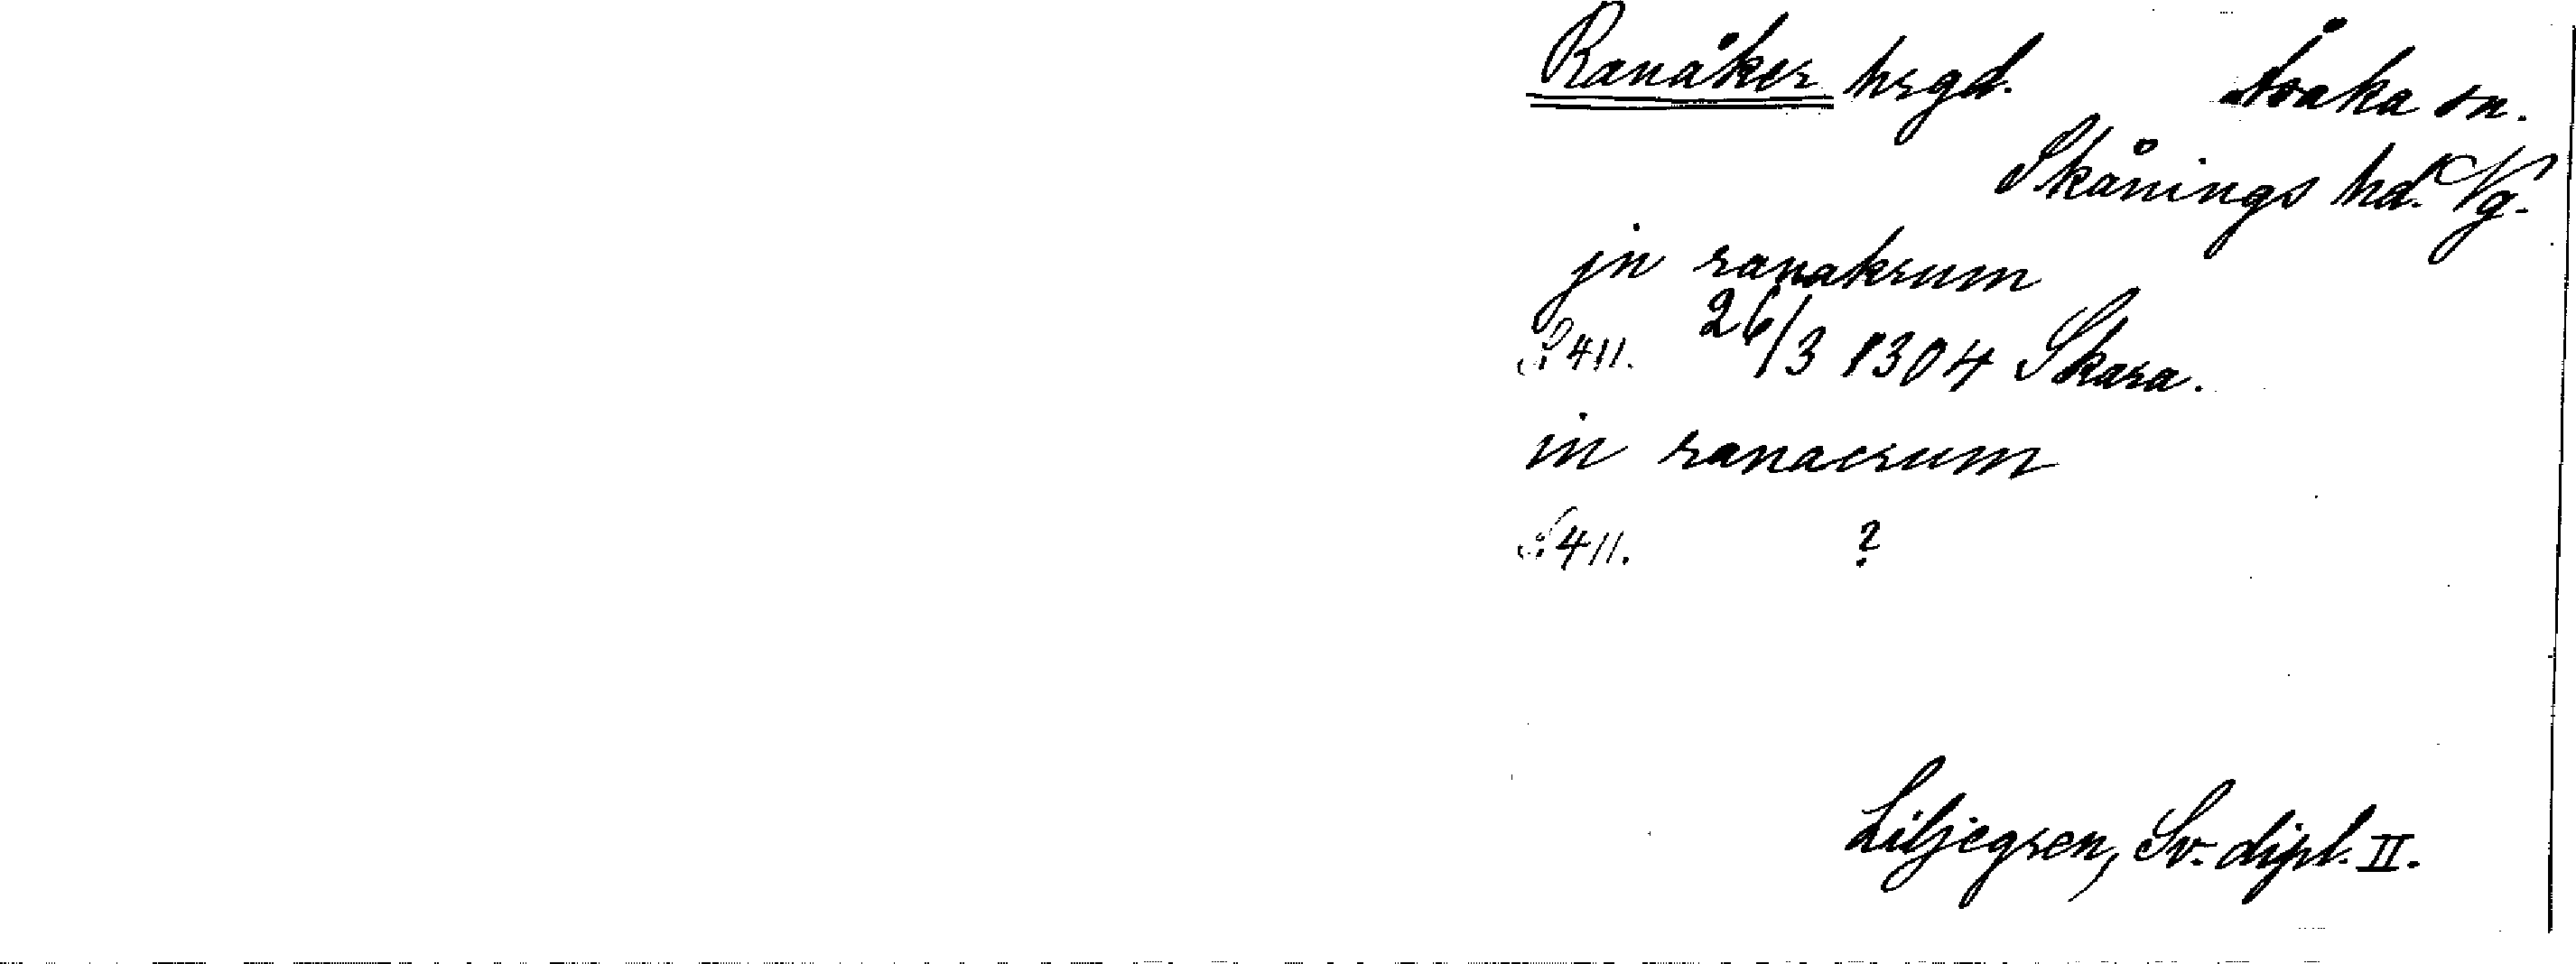 Ranåker hrgd. Åsaka sn.
Skånings hd. Vg.
jn ranakrum
S. 411. 26/3 1304 Skara.
in ranacrum
S. 411. ?
Liljegren, Sv. dipl. II.